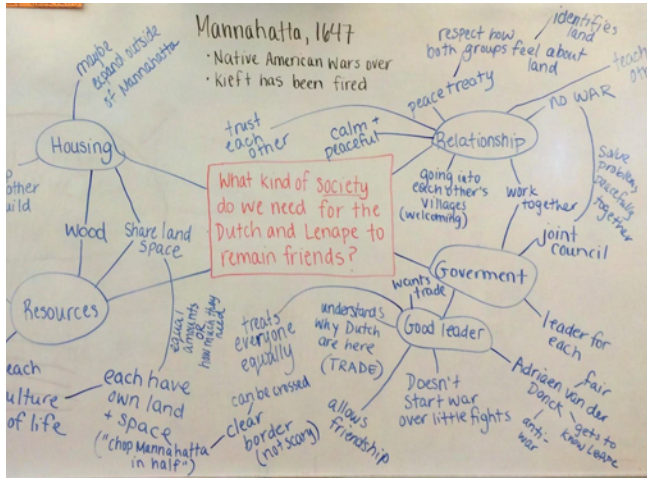 Mannahatta, 1647
• Native American Wars over
• Kieft has been fired
What kind of society
do we need for the
Dutch and Lenape to
remain friends?
Housing
maybe
expand outside
of Mannahatta
other
wood
share land
space
equal
amounts
or
how much they
need
Resources
each
of life
each have
own land
+ space
("chop Mannahatta
in half")
clear
border
(not scary)
can be crossed
Relationship
trust
each
other
calm +
peaceful
peace treaty
respect how
both groups feel about
land
identifies
land
teach
NO WAR
solve
problems
peacefully
together
going into
each other's
villages
(welcoming)
work
together
joint
council
Goverment
leader for
each
Good leader
wants
trade
treats
everyone
equally
understands
why Dutch
are here
(TRADE)
allows
friendship
Doesn't
start war
over little fights
Adriaen van der
Donck
fair
gets to
know Lenape
anti-
war